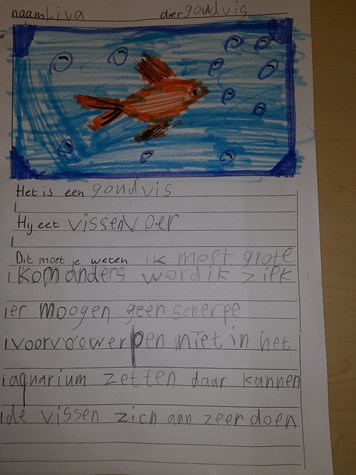 naam Liva dier goudvis
Het is een goudvis
Hij eet vissenvoer
Dit moet je weten ik moet grote
kom anders word ik ziek
er moogen geen scherpe
voorvoowerpen niet in het
aquarium zetten daar kunnen
de vissen zich aan zeer doen